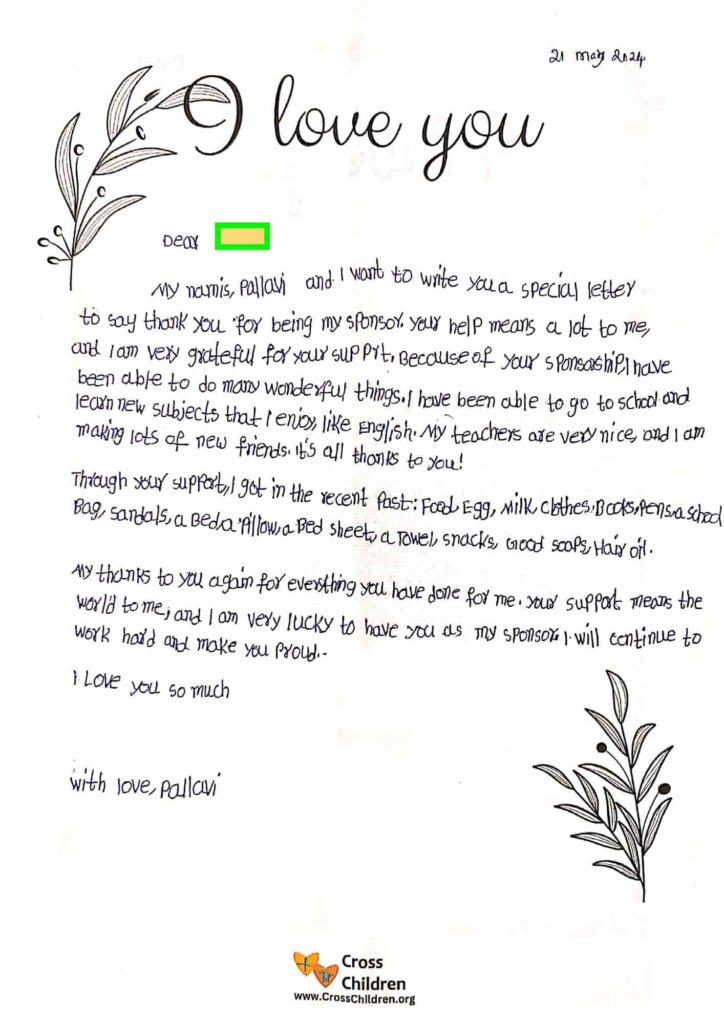 21 may 2024
I love you
Dear
My namis, Pallavi and I want to write you a special letter
to say thank you for being my sponsor. your help means a lot to me,
and I am very grateful for your supprt. Because of your sponsorship, I have
been able to do many wonderful things. I have been able to go to school and
learn new subjects that I enjoy, like English. My teachers are very nice, and I am
making lots of new friends. it's all thanks to you!
Through your support, I got in the recent past: Food, Egg, Milk, clthes, Books, Pens, a school
Bag, sandals, a Bed, a Pillow, a Bed sheet, a Towel, snacks, Good soaps, Hair oil.
My thanks to you again for everthing you have done for me. your support means the
world to me, and I am very lucky to have you as my sponsor. I will continue to
work hard and make you proud..
I Love you so much
with love, Pallavi
Cross
Children
www.CrossChildren.org